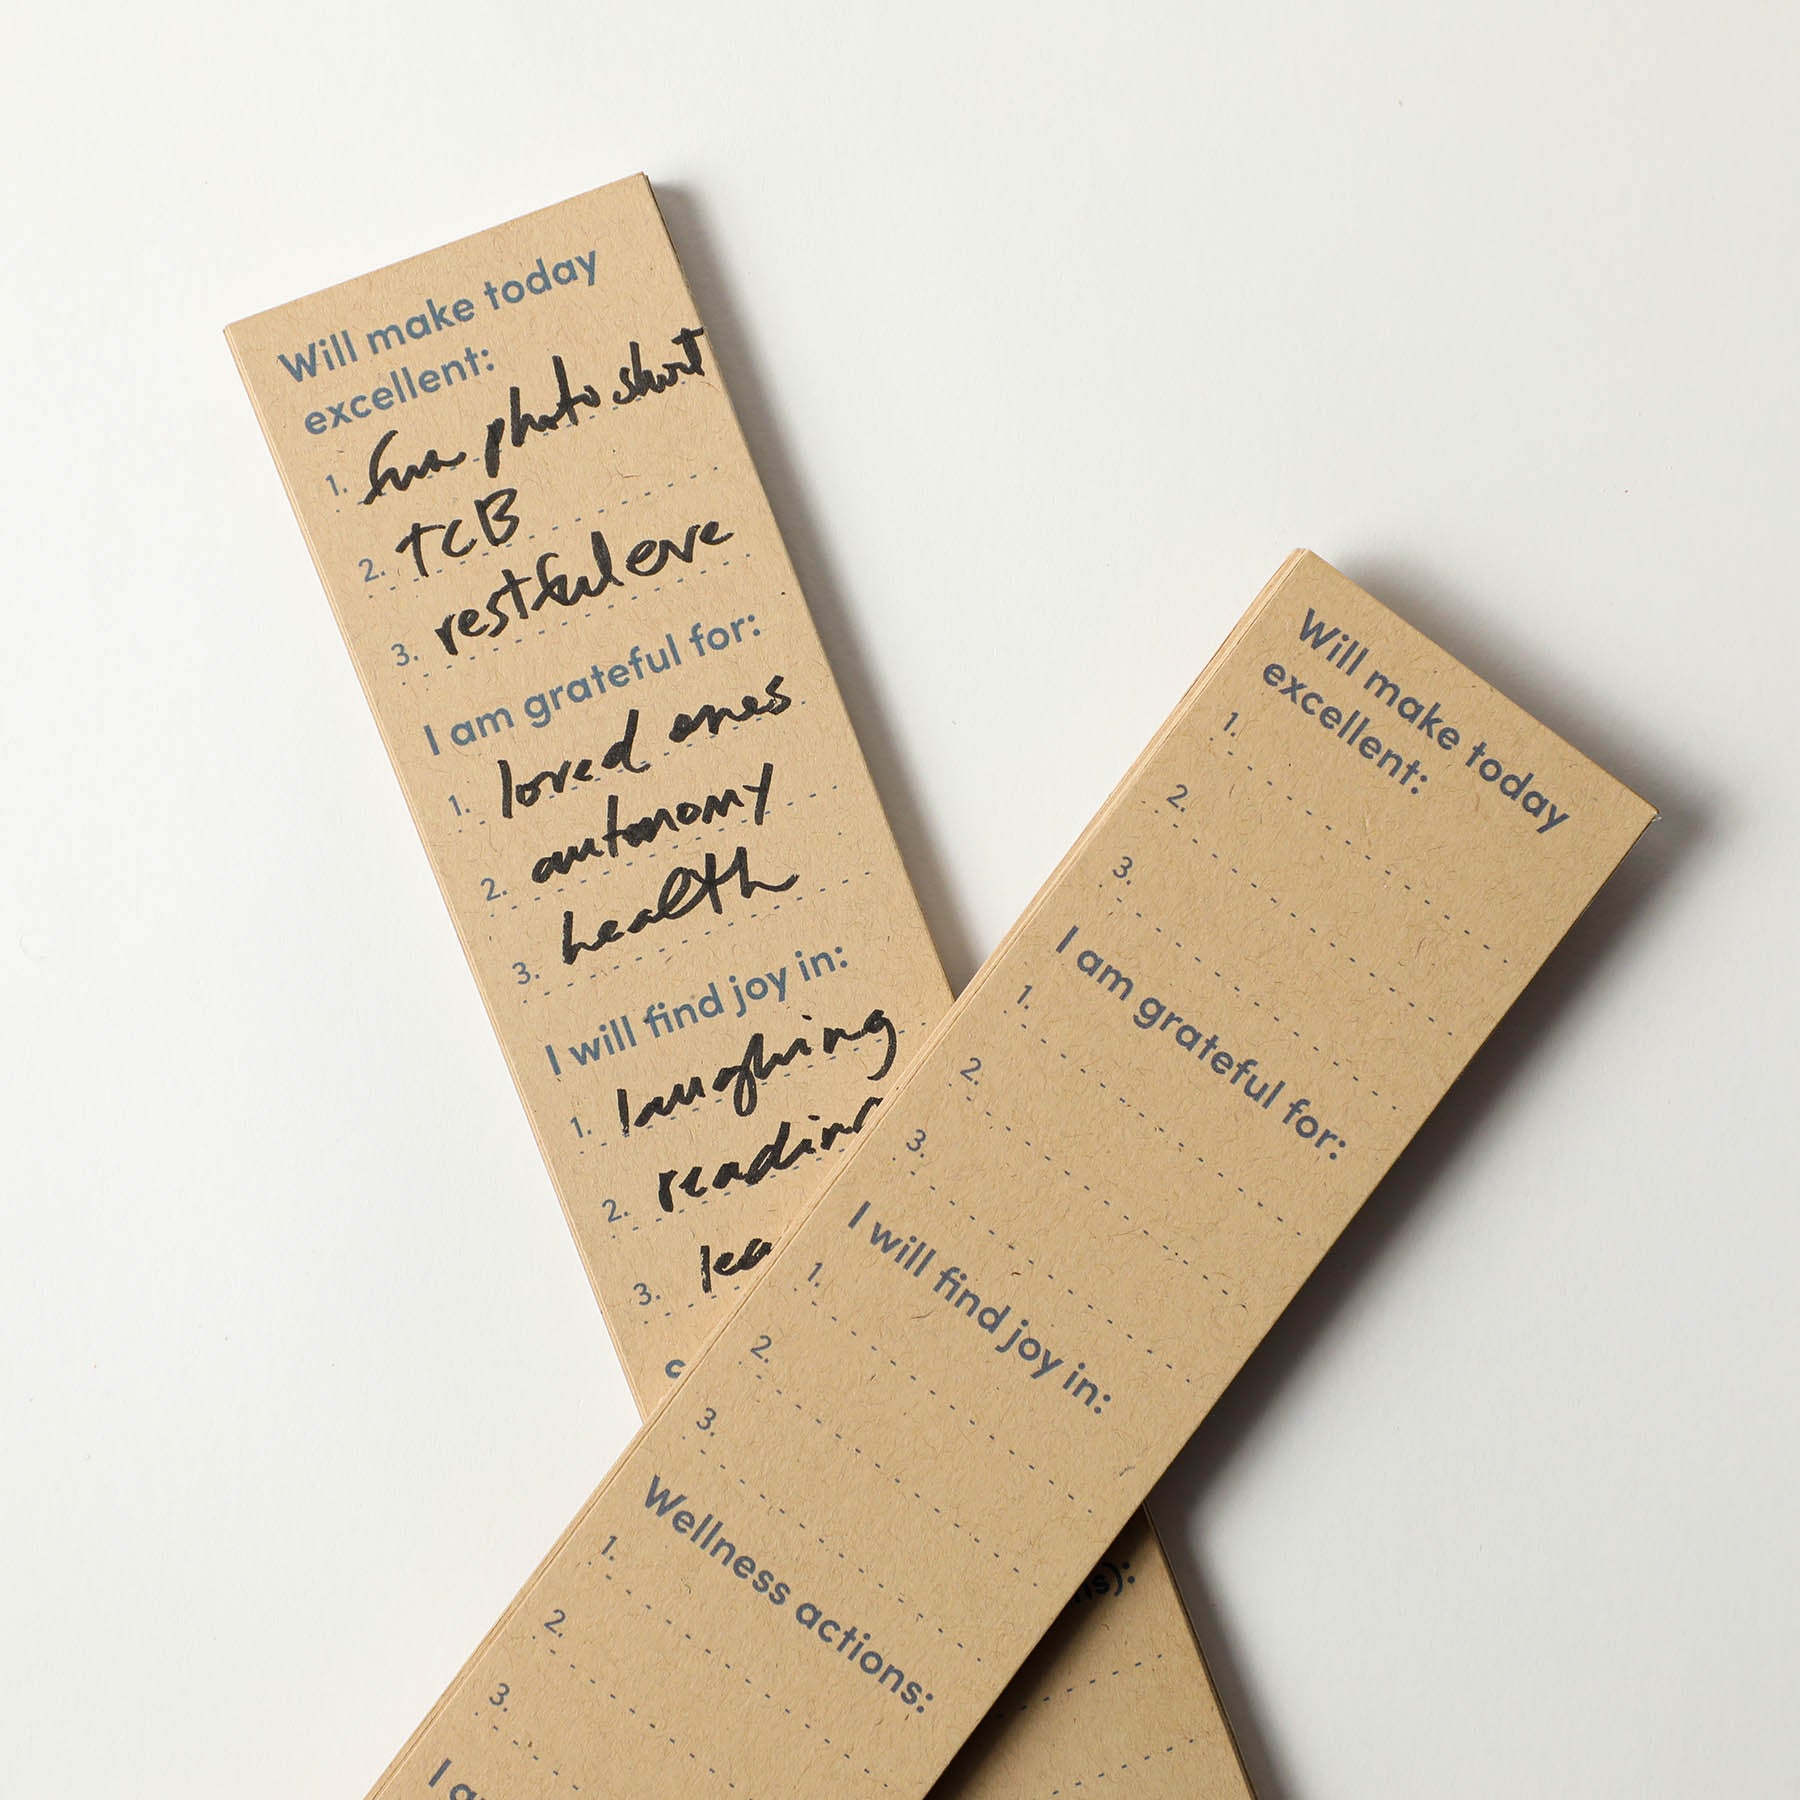 Will make today
excellent:
1. fun photo shoot
2. TCB
3. restful eve
I am grateful for:
1. loved ones
2. autonomy
3. health
I will find joy in:
1. laughing
2. readin
3. lea
Will make today
excellent:
1.
2.
3.
I am grateful for:
1.
2.
3.
I will find joy in:
1.
2.
3.
Wellness actions:
1.
2.
3.
I a
s):